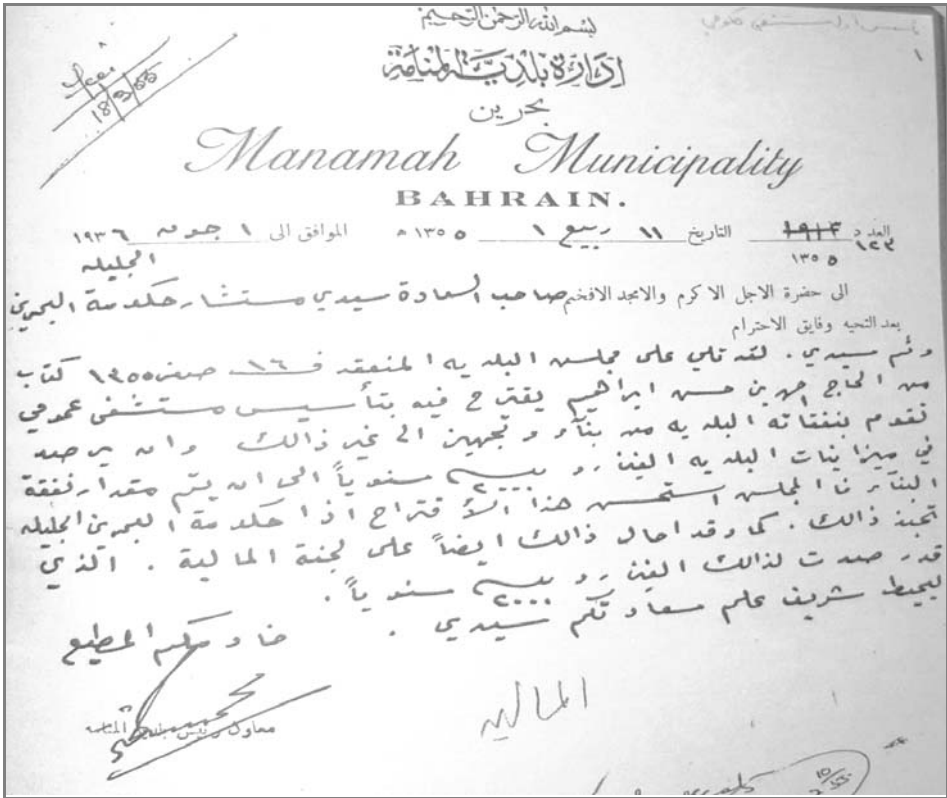 بسم الله الرحمن الرحيم
ادارة بلدية المنامة
بحرين
Manamah Municipality
BAHRAIN.
18/3/55
١
العدد ١٩١٣ التاريخ ١١ ربيع ١ ١٣٥٥ ه الموافق الى ١ جون ١٩٣٦
١٢٣
١٣٥٥
الجليله
الى حضرة الاجل الاكرم والامجد الافخم صاحب السعادة سيدي مستشار حكومة البحرين
بعد التحيه وفايق الاحترام
وثم سيدي. لقد تلي على مجلس البلديه المنعقد في ١٦ صفر ١٣٥٥ كتاب
من الحاج بن حسن ابراهيم يقترح فيه بتأسيس مستشفى عمومي
تقوم بنفقاته البلديه من بنآء وتجهيز الى غير ذالك وان يرصد
في ميزانيات البلديه الفين روبيه ٢٠٠٠ سنوياً الى ان يتم مقدار نفقة
البنآء فالمجلس استحسن هذا الأقتراح اذا حكومة البحرين الجليله
تحبذ ذالك. كما وقد احال ذالك ايضاً على لجنة المالية. الذي
قد رصدت لذالك الفين روبيه ٢٠٠٠ سنوياً.
ليحيط شريف علم سعادتكم سيدي.
خادمكم المطيع
معاون رئيس بلدية المنامه
الماليه